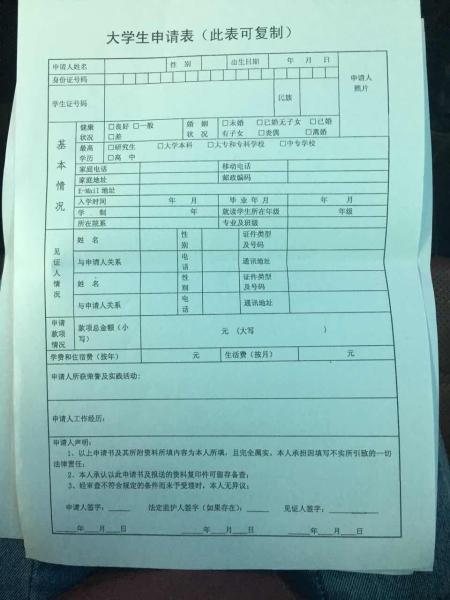 大学生申请表（此表可复制）
申请人姓名 性 别 出生日期 年 月 日 申请人照片
身份证号码
学生证号码 民族
基本情况
健康状况 □良好 □一般 □差 婚姻状况 □未婚 □已婚无子女 □已婚有子女 □丧偶 □离婚
最高学历 □研究生 □大学本科 □大专和专科学校 □中专学校 □高 中
家庭电话 移动电话
家庭地址 邮政编码
E-Mail 地址
入学时间 年 月 毕 业 年 月 年 月
学 制 年 就读学生所在年级 年级
所在院系 专业及班级
见证人情况
姓 名 性别 证件类型及号码
与申请人关系 电话 通讯地址
姓 名 性别 证件类型及号码
与申请人关系 电话 通讯地址
申请款项情况 款项总金额（小写） 元 （大写 ）
学费和住宿费（按年） 元 生活费（按月） 元
申请人所获荣誉及实践活动：
申请人工作经历：
申请人声明：
1、以上申请书及其所附资料所填内容为本人所填，且完全属实。本人承担因填写不实所引致的一切
法律责任；
2、本人承认以此申请书及报送的资料复印件可留存备查；
3、经审查不符合规定的条件而未予受理时，本人无异议；
申请人签字：____ 法定监护人签字（如果存在）：____ 见证人签字：____
____年__月__日 ____年__月__日 ____年__月__日